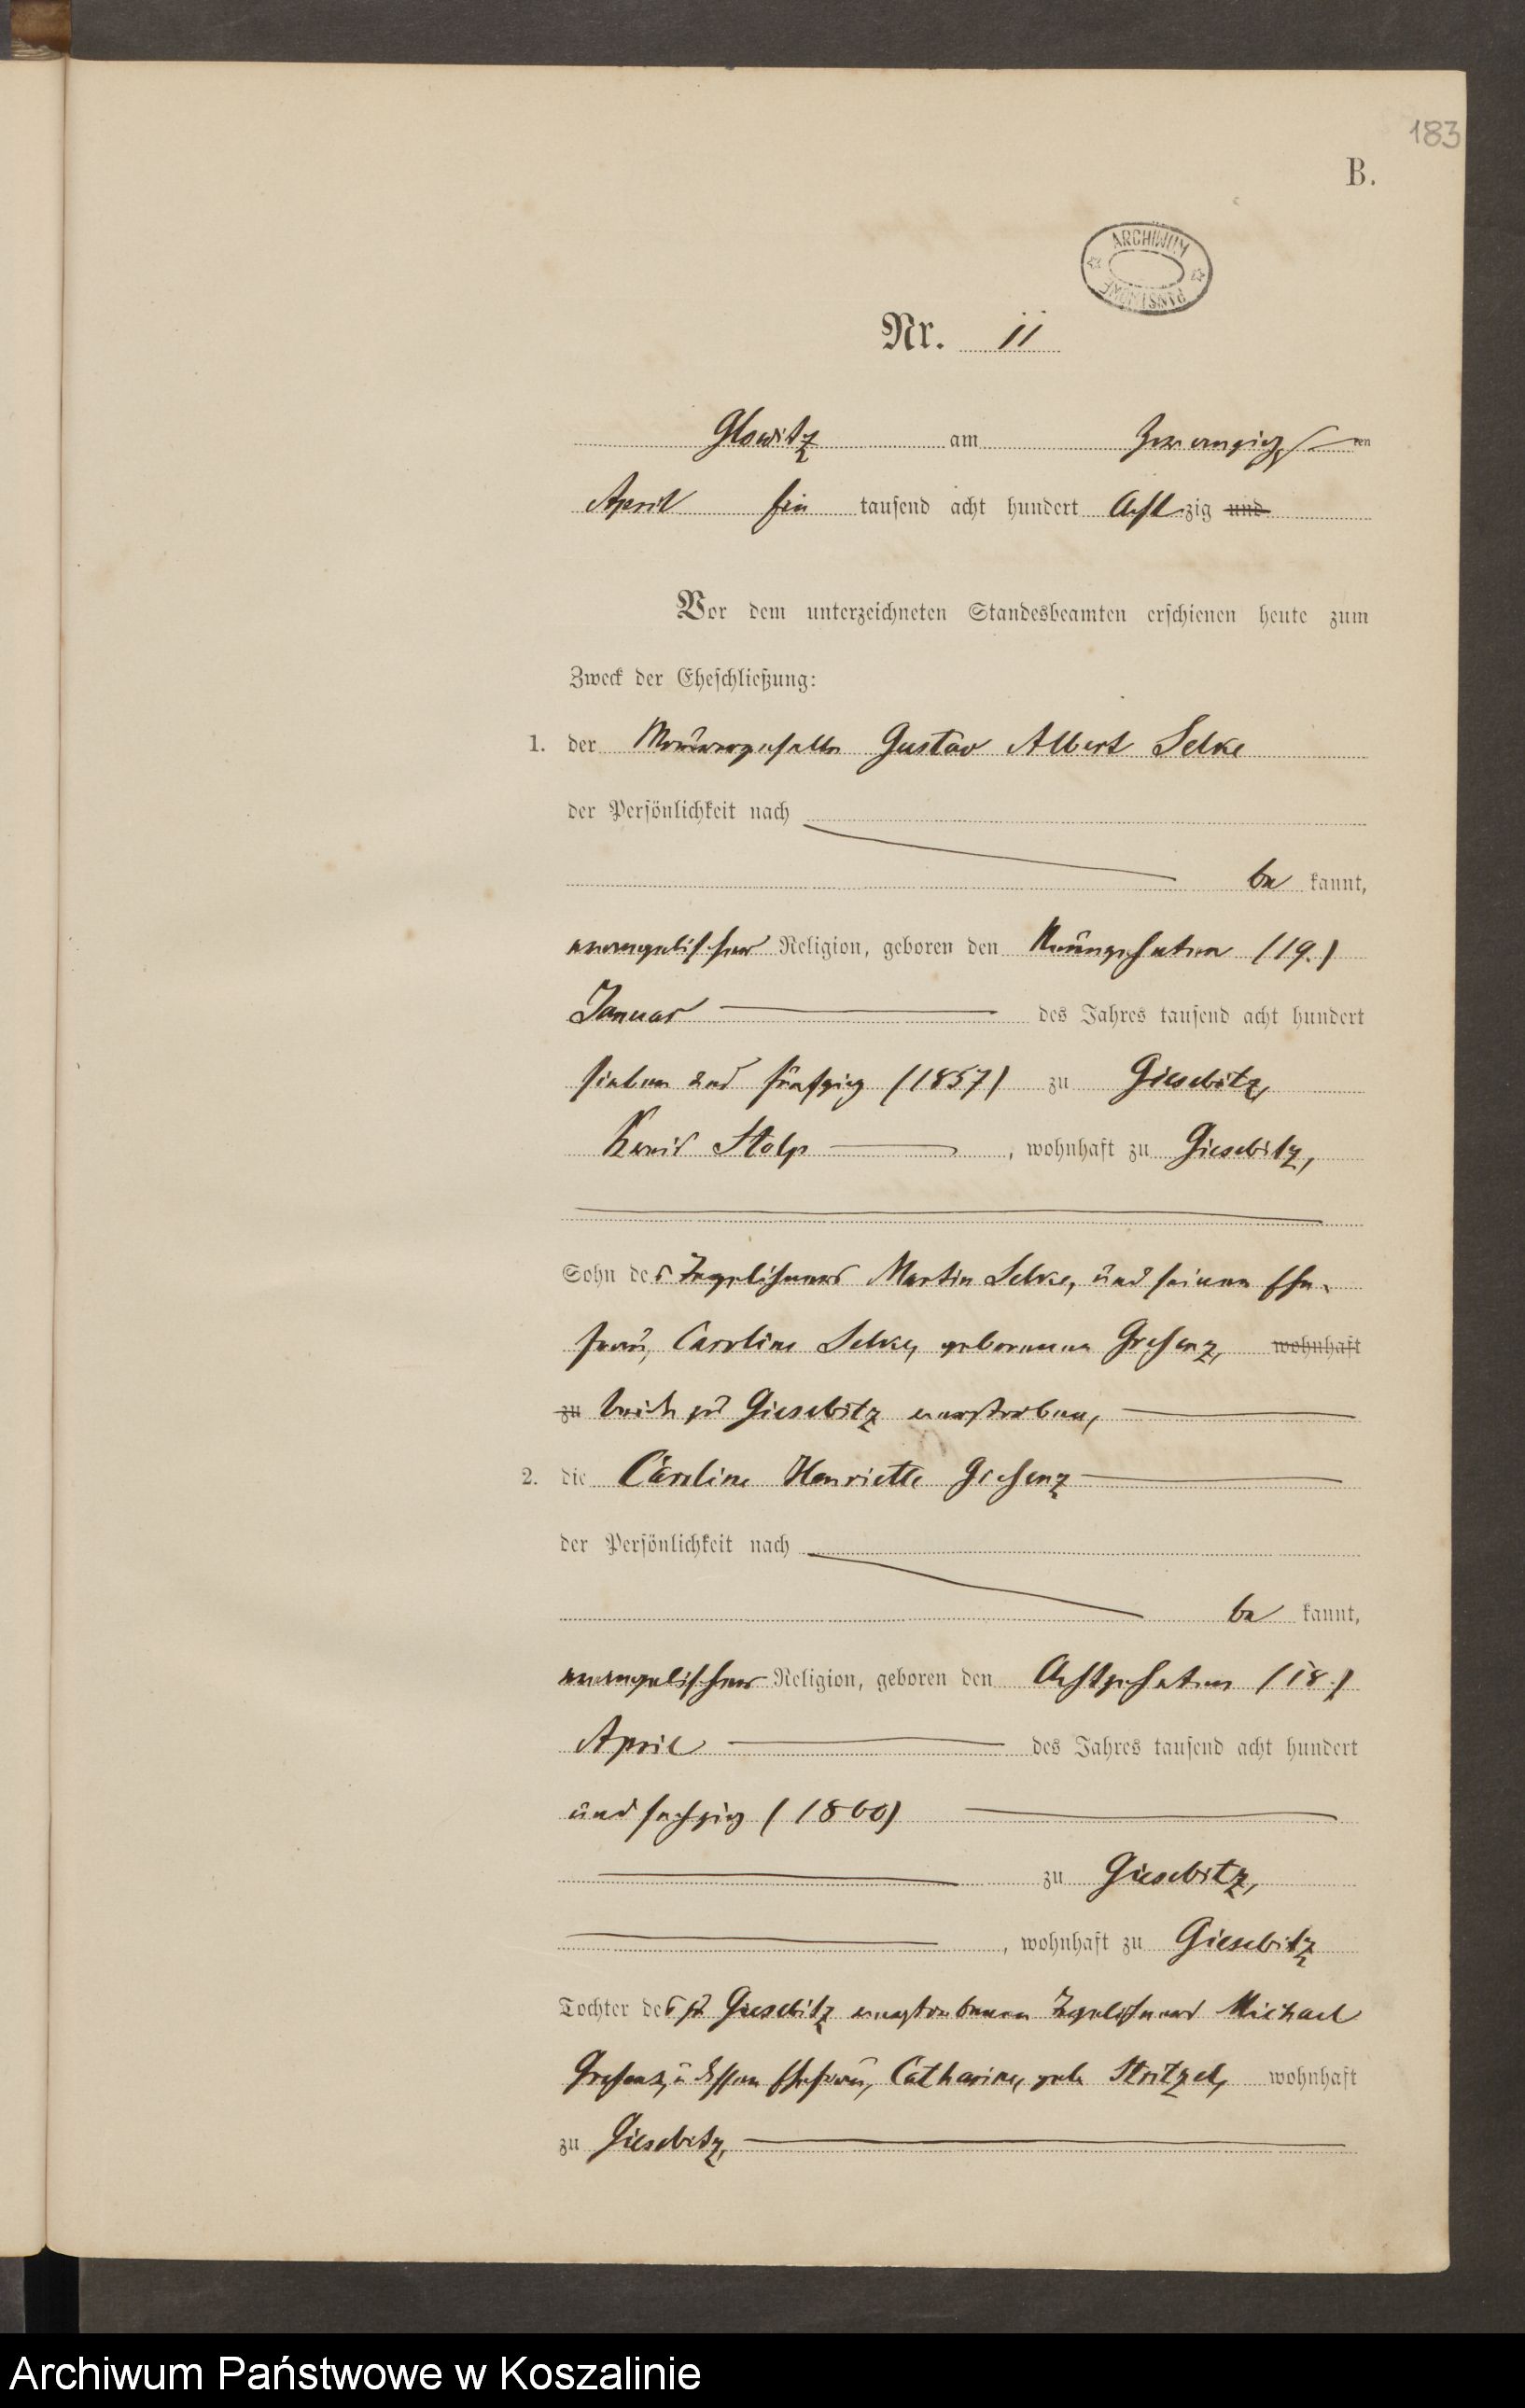 183
B.
ARCHIWUM
PAŃSTWOWE
Nr. 11
Glowitz am Zwanzigsten
April Ein tausend acht hundert Achtzig und
Vor dem unterzeichneten Standesbeamten erschienen heute zum
Zweck der Eheschließung:
1. der Maurergeselle Gustav Albert Selke
der Persönlichkeit nach
be kannt,
evangelischer Religion, geboren den Neunzehnten (19.)
Januar des Jahres tausend acht hundert
sieben und fünfzig (1857) zu Giesebitz,
Kreis Stolp, wohnhaft zu Giesebitz,
Sohn des Martin Selke, und seiner Ehe-
frau, Caroline Selke, geborenen Greßenz, wohnhaft
zu beide zu Giesebitz verstorben,
2. die Caroline Henriette Greßenz
der Persönlichkeit nach
be kannt,
evangelischer Religion, geboren den Achtzehnten (18.)
April des Jahres tausend acht hundert
und sechzig (1860)
zu Giesebitz,
, wohnhaft zu Giesebitz
Tochter des zu Giesebitz verstorbenen Michael
Greßenz, u dessen Ehefrau, Catharine, geb. Stritzel, wohnhaft
zu Giesebitz,
Archiwum Państwowe w Koszalinie